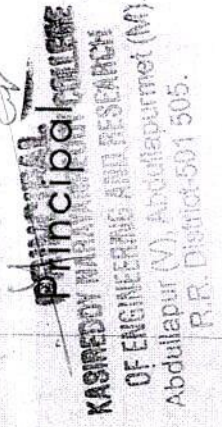 PRINCIPAL
Principal
KASIREDDY NARAYANREDDY COLLEGE
OF ENGINEERING AND RESEARCH
Abdullapur (V), Abdullapurmet (M)
R.R. District-501 505.